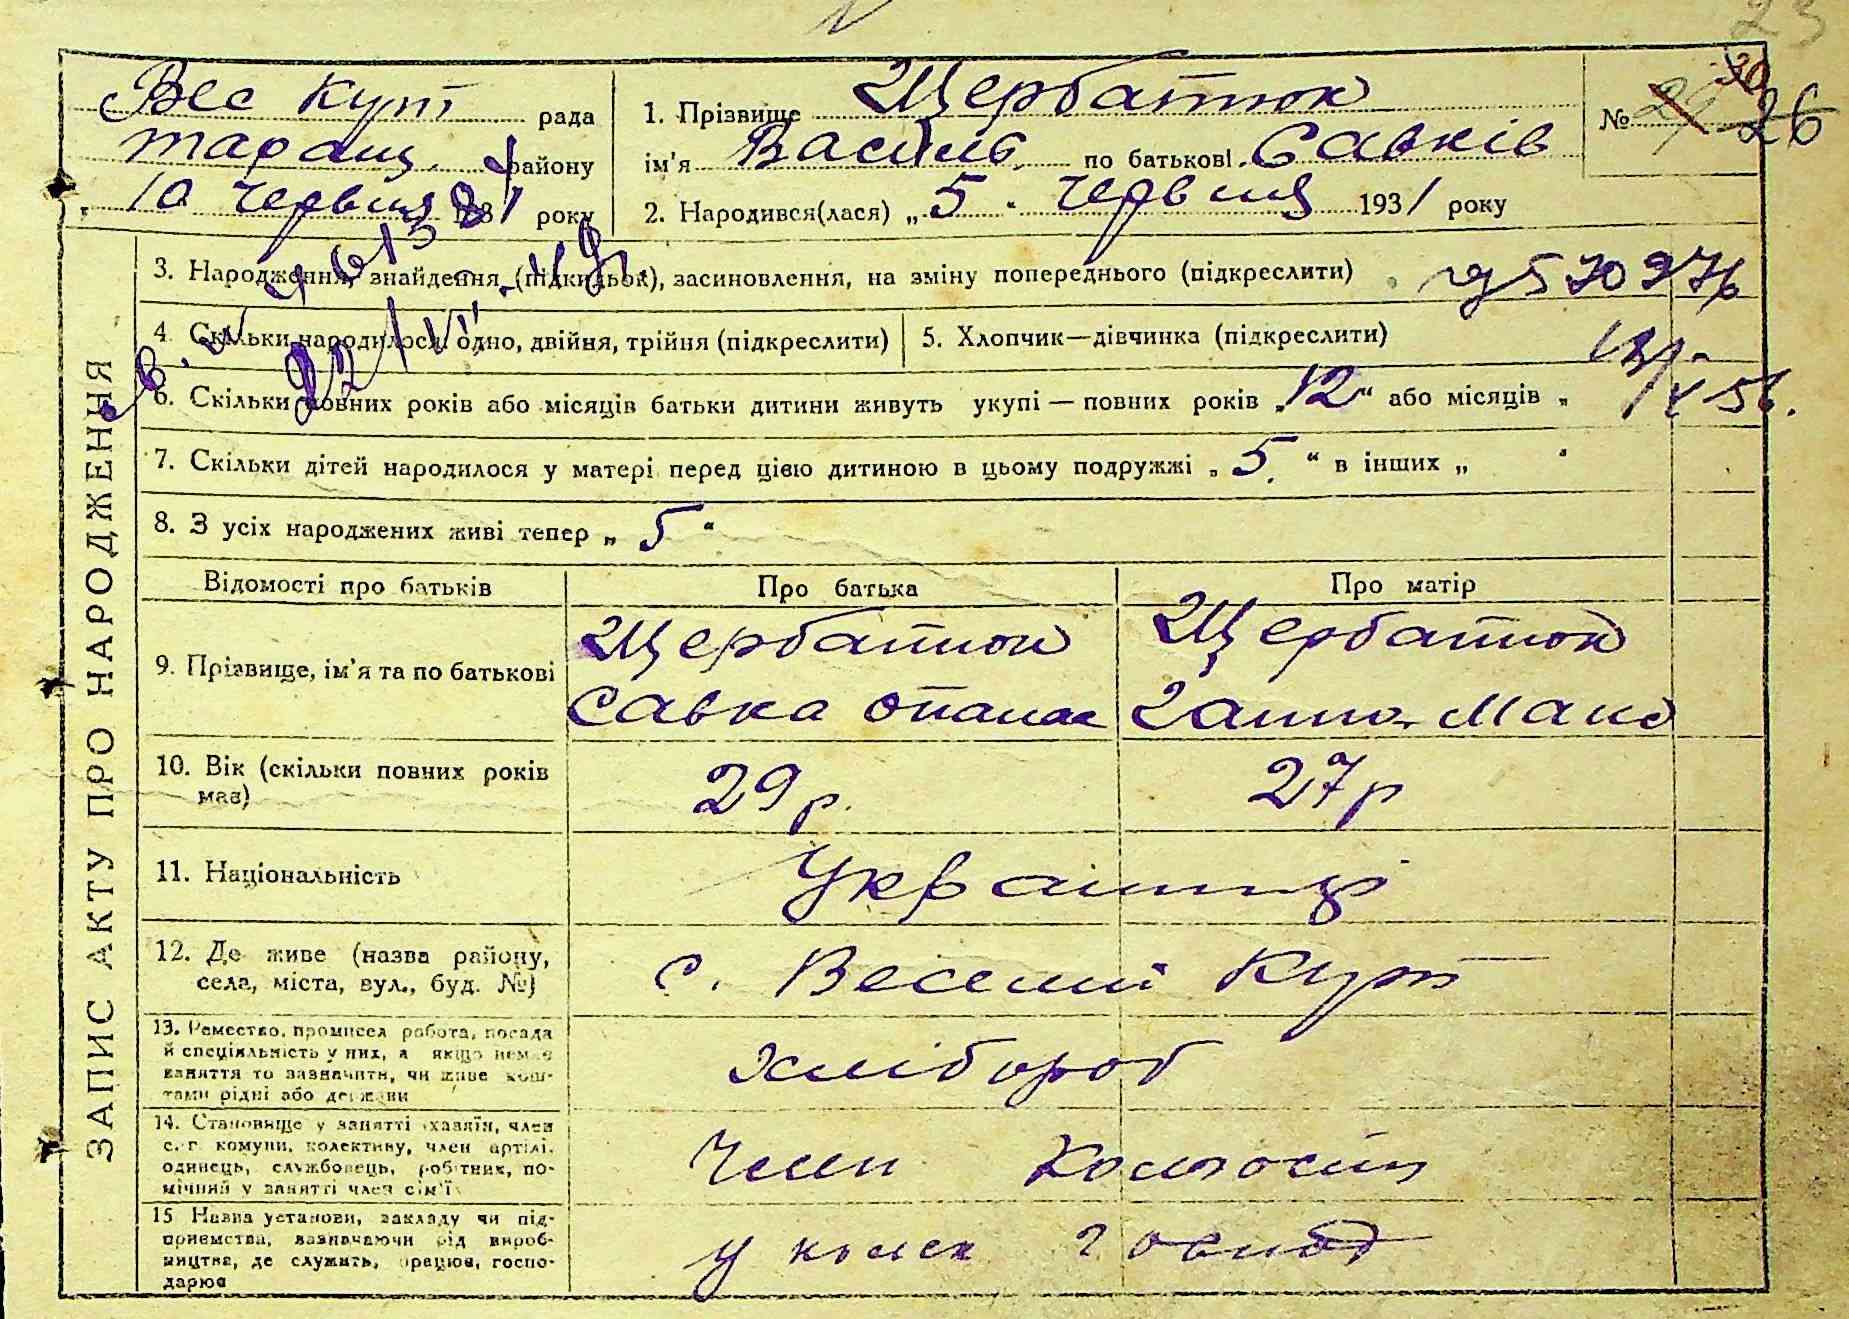 23
Вес Кут рада
Таращ. району
„ 10 червця 1931 року
1. Прізвище Щербатюк
ім'я Василь по батькові Савків
2. Народився(лася) „ 5 " червця 1931 року
№ 26
30
3. Народження, знайдення (підкидьок), засиновлення, на зміну попереднього (підкреслити)
4. Скільки народилося: одно, двійня, трійня (підкреслити)
5. Хлопчик—дівчинка (підкреслити)
6. Скільки повних років або місяців батьки дитини живуть укупі — повних років „ 12 “ або місяців „
7. Скільки дітей народилося у матері перед цією дитиною в цьому подружжі „ 5. “ в інших „ “
8. З усіх народжених живі тепер „ 5 “
ЗАПИС АКТУ ПРО НАРОДЖЕННЯ
Відомості про батьків
Про батька
Про матір
9. Прізвище, ім'я та по батькові
Щербатюк
Савка Опанас
Щербатюк
Ганна
10. Вік (скільки повних років
має)
29 р.
27 р
11. Національність
Українці
12. Де живе (назва району,
села, міста, вул., буд. №)
с. Веселий Кут
13. Ремество, промисел робота, посада
й спеціяльність у них, а якщо немає
заняття то зазначити, чи живе кош-
тами рідні або держави
хлібороб
14. Становище у занятті (хазяїн, член
с.-г комуни, колективу, член артілі,
одинець, службовець, робітник, по-
мічний у занятті член сім'ї)
Член
15 Назва установи, закладу чи під-
приємства, зазначаючи рід вироб-
ництва, де служить, працює, госпо-
дарює
у колек господ